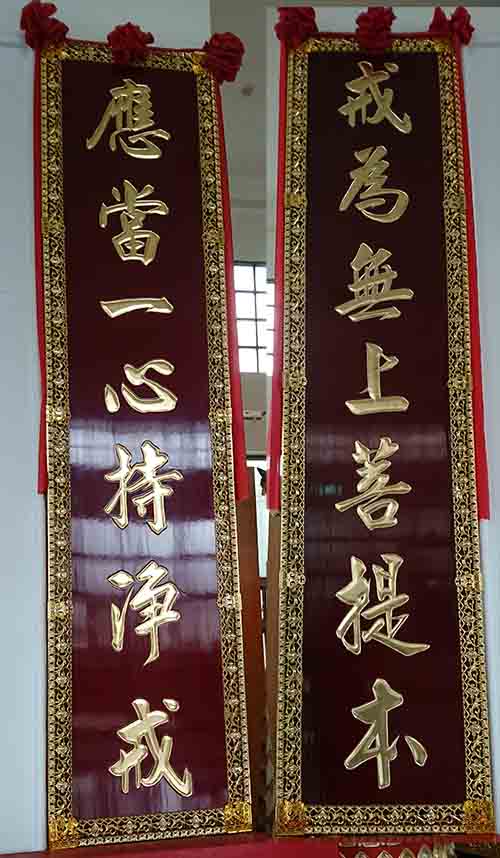 戒為無上菩提本
應當一心持淨戒